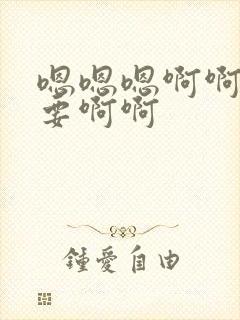 嗯嗯嗯啊啊
要啊啊
鍾愛自由